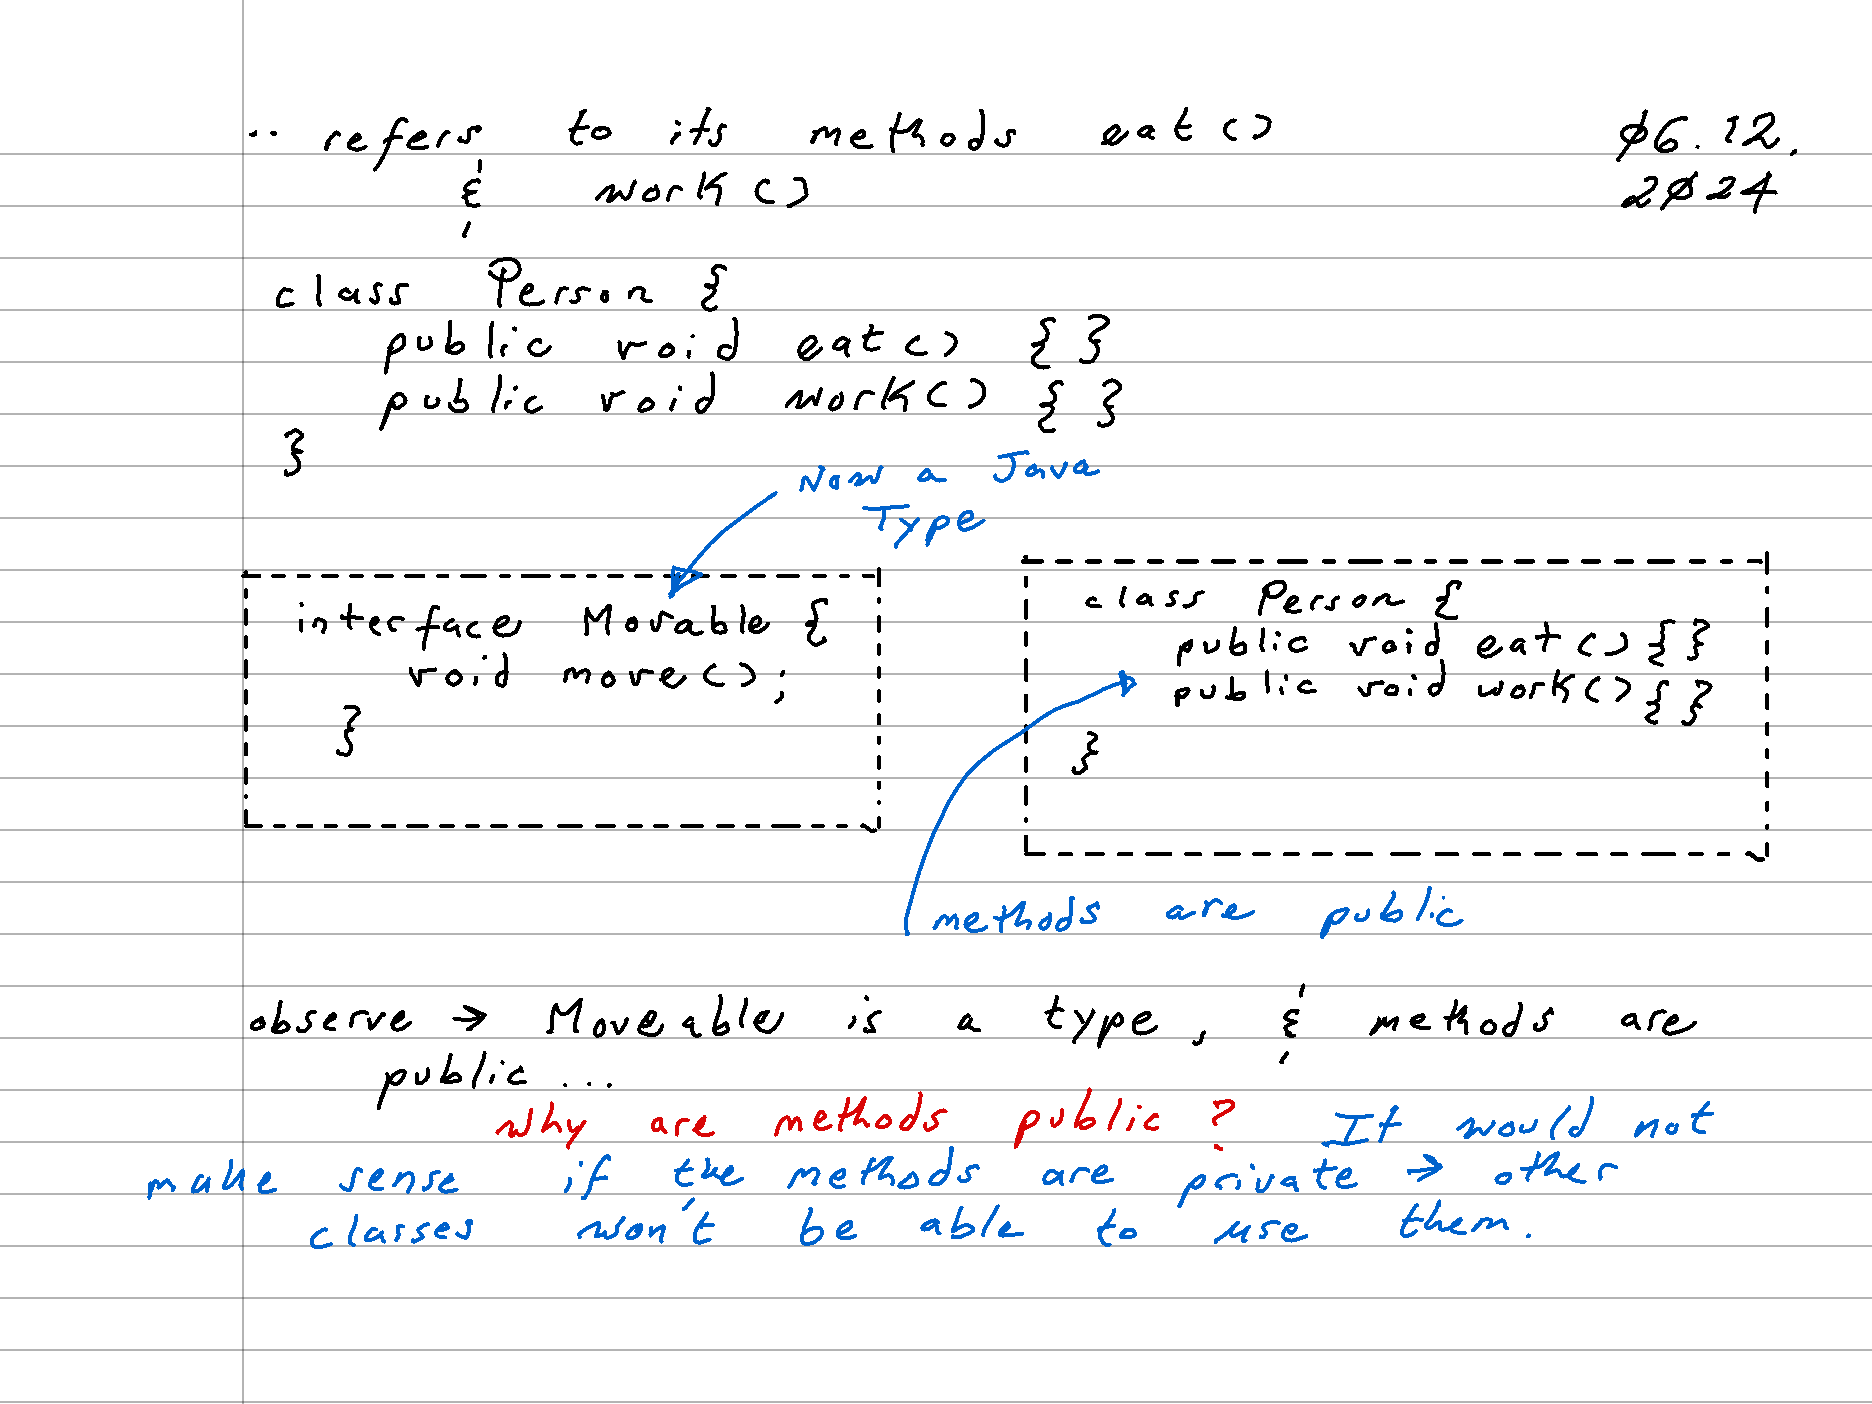 .. refers to its methods eat()
& work()
ø6.12.
2ø24
class Person {
public void eat() { }
public void work() { }
}
Now a Java
Type
interface Movable {
void move();
}
class Person {
public void eat() { }
public void work() { }
}
methods are public
observe → Moveable is a type, & methods are
public ...
Why are methods public ? It would not
make sense if the methods are private → other
classes won't be able to use them.